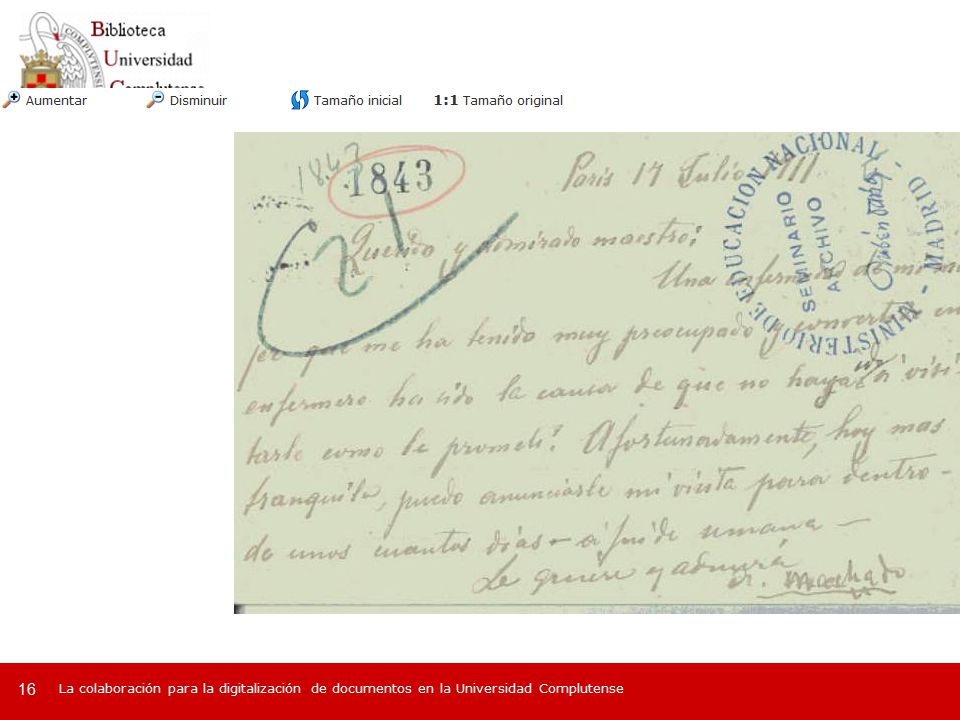 Biblioteca
Universidad
Complutense
Aumentar Disminuir Tamaño inicial 1:1 Tamaño original
1843
1843
21
Paris 17 Julio 1911
MINISTERIO DE EDUCACION NACIONAL - MADRID
SEMINARIO
ARCHIVO
Rubén Darío
Querido y admirado maestro:
Una enfermedad de mi mu
jer que me ha tenido muy preocupado y convertido en
enfermero ha sido la causa de que no haya ido á visi
tarle como le prometí. Afortunadamente, hoy mas
tranquilo, puedo anunciarle mi visita para dentro
de unos cuantos días - á fin de semana -
Le quiere y admira
A. Machado
16 La colaboración para la digitalización de documentos en la Universidad Complutense